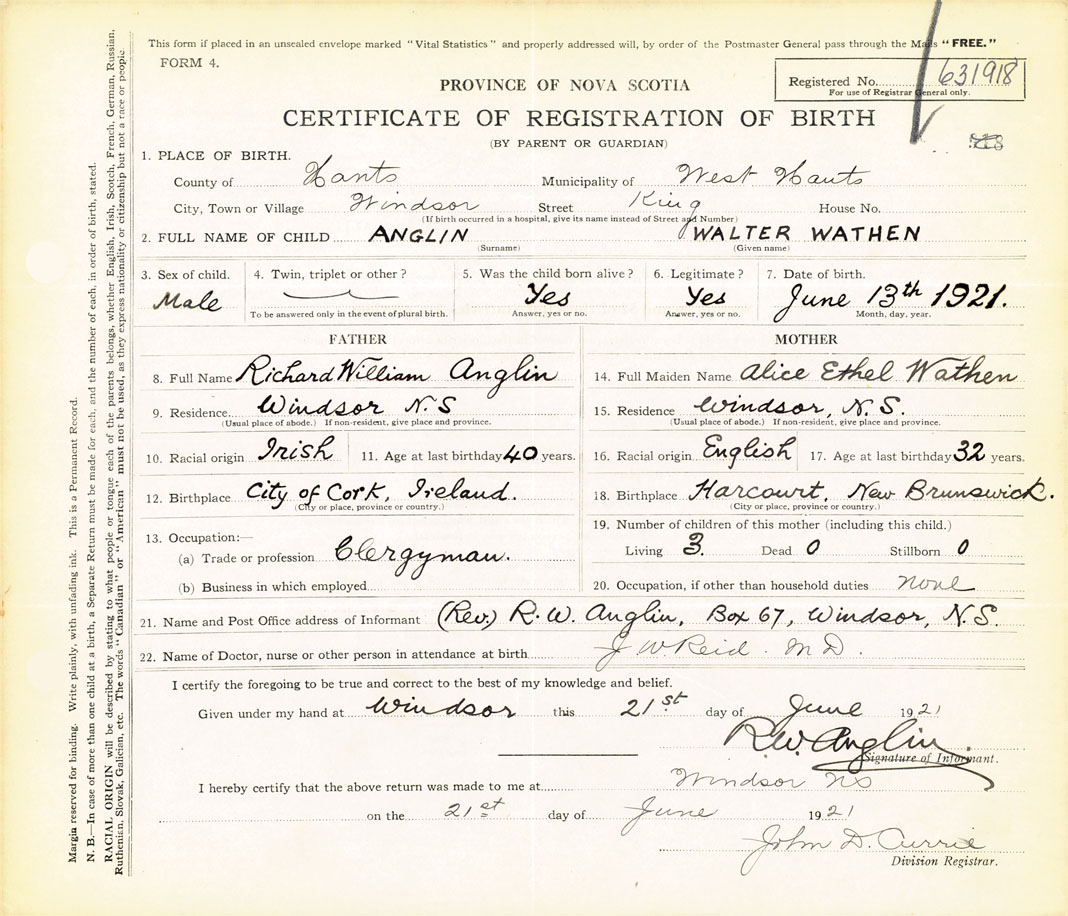 This form if placed in an unsealed envelope marked "Vital Statistics" and properly addressed will, by order of the Postmaster General pass through the Mails "FREE."
FORM 4.
PROVINCE OF NOVA SCOTIA
Registered No. 631918
For use of Registrar General only.
CERTIFICATE OF REGISTRATION OF BIRTH
(BY PARENT OR GUARDIAN)
1. PLACE OF BIRTH.
County of Hants Municipality of West Hants
City, Town or Village Windsor Street King House No.
(If birth occurred in a hospital, give its name instead of Street and Number)
2. FULL NAME OF CHILD ANGLIN WALTER WATHEN
(Surname) (Given name)
3. Sex of child. 4. Twin, triplet or other? 5. Was the child born alive? 6. Legitimate? 7. Date of birth.
Male Yes Yes June 13th 1921.
To be answered only in the event of plural birth. Answer, yes or no. Answer, yes or no. Month, day, year.
FATHER MOTHER
8. Full Name Richard William Anglin 14. Full Maiden Name Alice Ethel Wathen
9. Residence Windsor N.S 15. Residence Windsor, N.S.
(Usual place of abode.) If non-resident, give place and province. (Usual place of abode.) If non-resident, give place and province.
10. Racial origin Irish 11. Age at last birthday 40 years. 16. Racial origin English 17. Age at last birthday 32 years.
12. Birthplace City of Cork, Ireland. 18. Birthplace Harcourt, New Brunswick.
(City or place, province or country.) (City or place, province or country.)
19. Number of children of this mother (including this child.)
13. Occupation:—
(a) Trade or profession Clergyman. Living 3. Dead 0 Stillborn 0
(b) Business in which employed 20. Occupation, if other than household duties none
21. Name and Post Office address of Informant (Rev.) R.W. Anglin, Box 67, Windsor, N.S.
22. Name of Doctor, nurse or other person in attendance at birth J W Reid. M D.
I certify the foregoing to be true and correct to the best of my knowledge and belief.
Given under my hand at Windsor this 21st day of June 1921
R.W. Anglin
Signature of Informant.
I hereby certify that the above return was made to me at Windsor NS
on the 21st day of June 1921
John D. Currie
Division Registrar.
Margin reserved for binding. Write plainly, with unfading ink. This is a Permanent Record.
N. B.—In case of more than one child at a birth, a Separate Return must be made for each, and the number of each, in order of birth, stated.
RACIAL ORIGIN will be described by stating to what people or tongue each of the parents belongs, whether English, Irish, Scotch, French, German, Russian,
Ruthenian, Slovak, Galician, etc. The words "Canadian" or "American" must not be used, as they express nationality or citizenship but not a race or people.